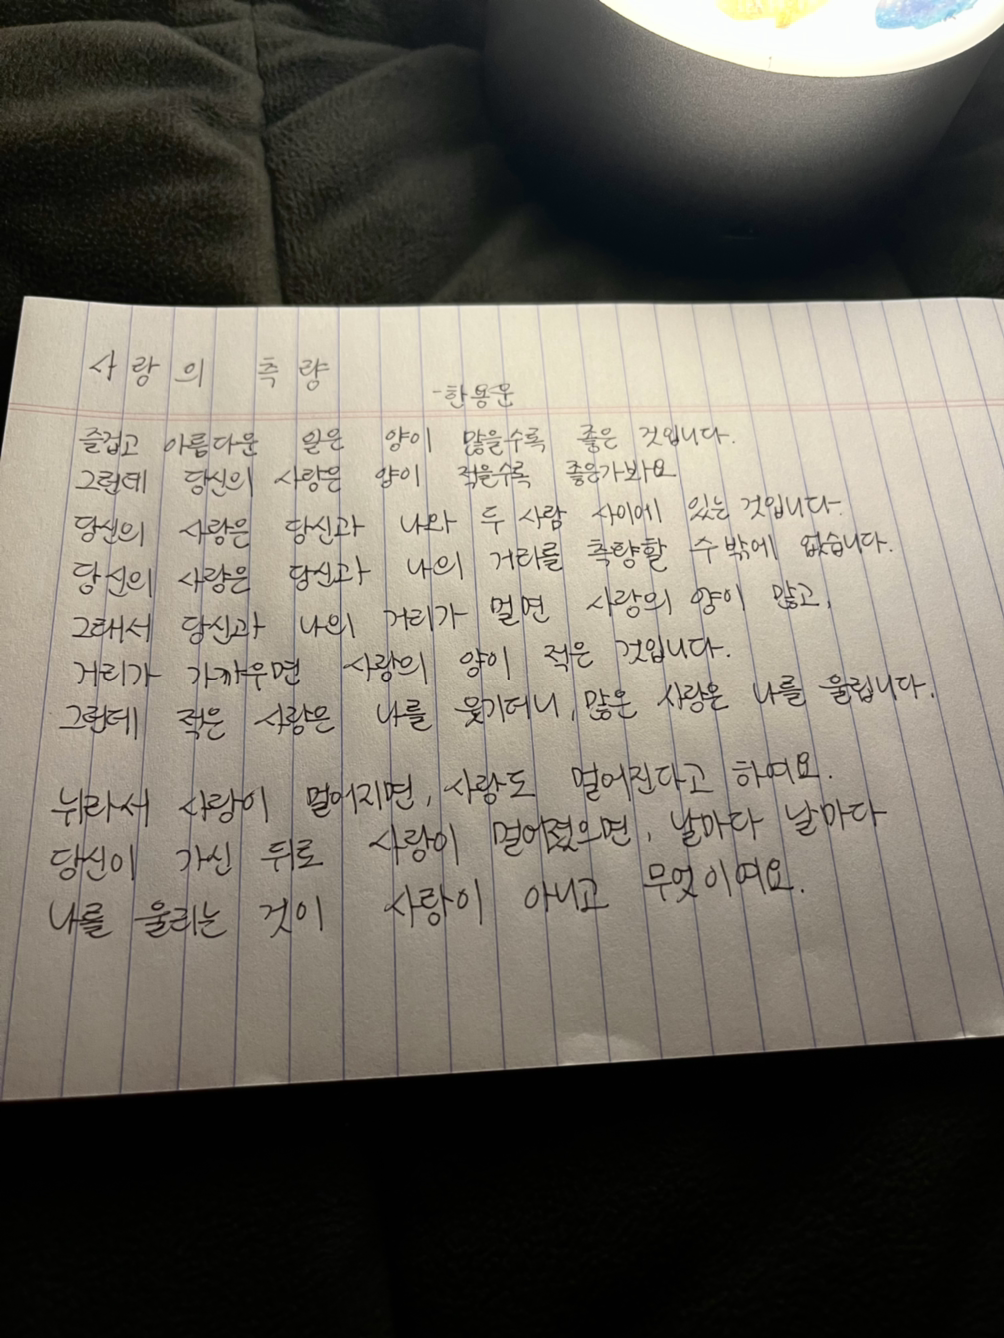 사랑의 측량
-한용운
즐겁고 아름다운 일은 양이 많을수록 좋은 것입니다.
그런데 당신의 사랑은 양이 적을수록 좋은가봐요
당신의 사랑은 당신과 나와 두 사람 사이에 있는 것입니다.
당신의 사량은 당신과 나의 거리를 측량할 수밖에 없습니다.
그래서 당신과 나의 거리가 멀면 사랑의 양이 많고,
거리가 가까우면 사랑의 양이 적은 것입니다.
그런데 적은 사랑은 나를 웃기더니, 많은 사랑은 나를 울립니다.
뉘라서 사람이 멀어지면, 사랑도 멀어진다고 하여요.
당신이 가신 뒤로 사랑이 멀어졌으면, 날마다 날마다
나를 울리는 것이 사랑이 아니고 무엇이여요.